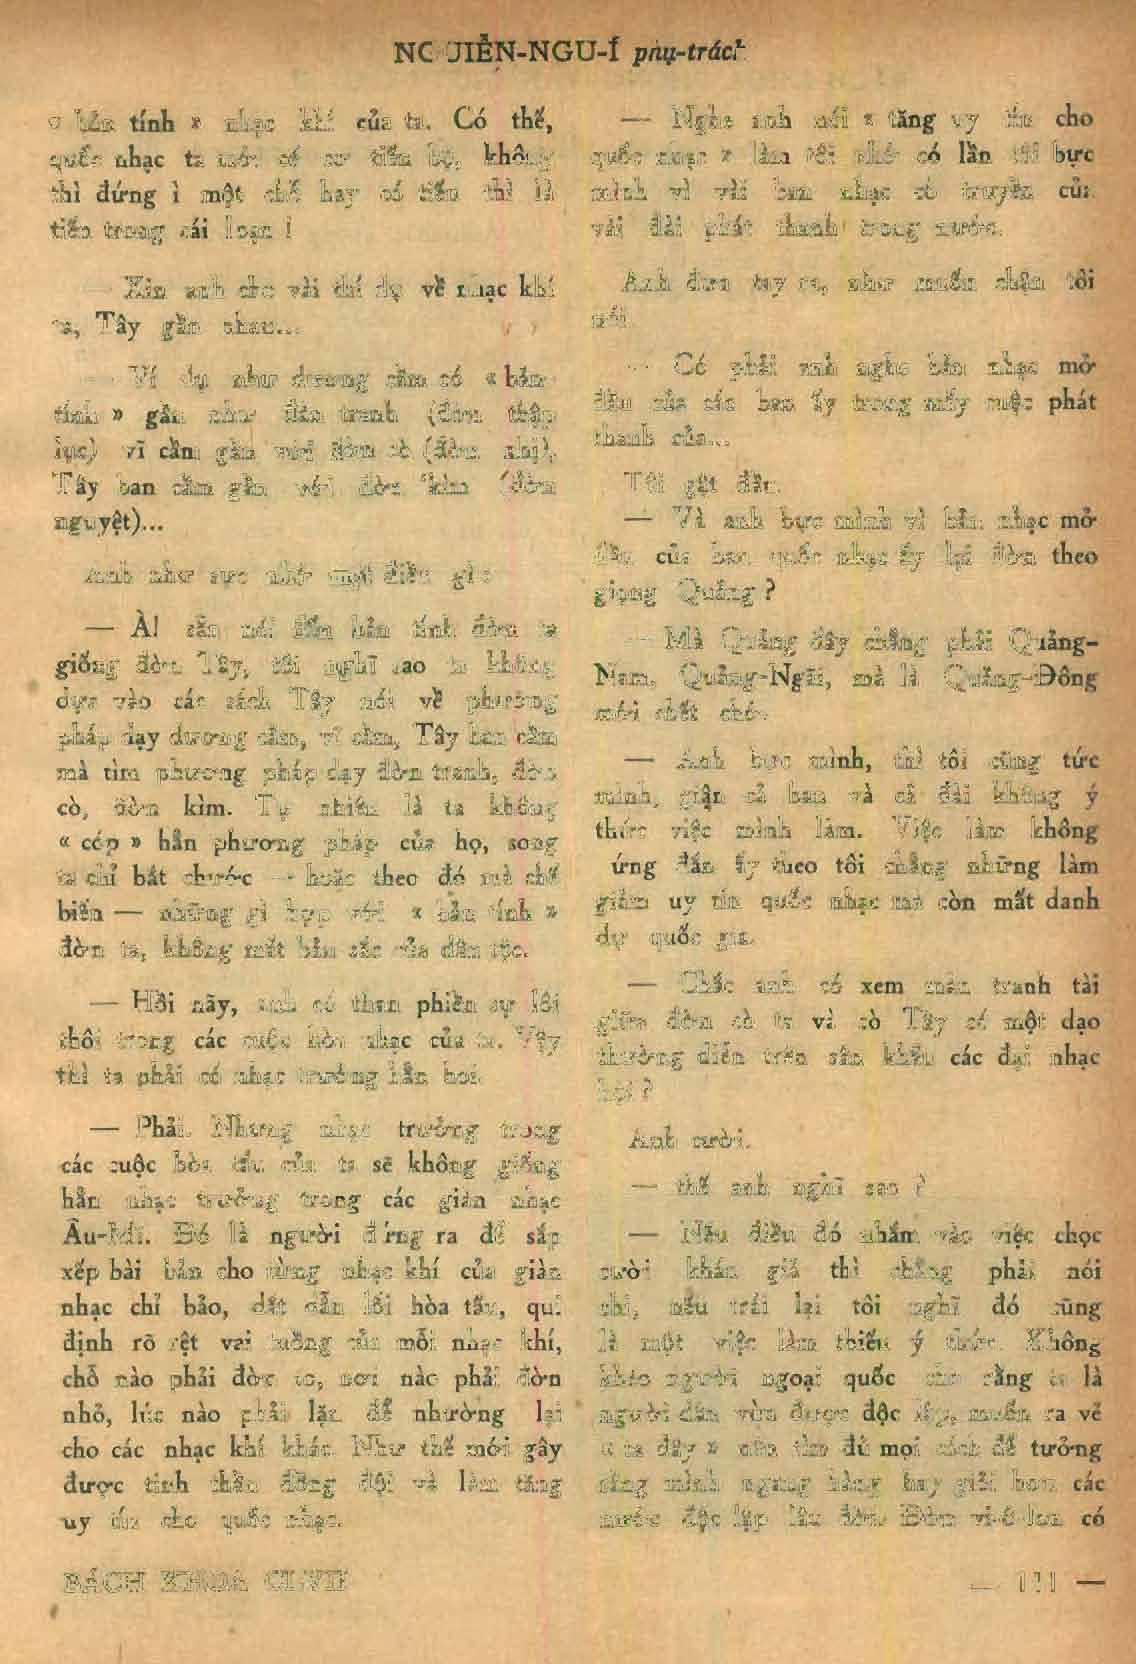 NGUIỄN-NGU-Í phụ-trách
« bản tính » nhạc khí của ta. Có thế,
quốc nhạc ta mới có cơ tiến bộ, không
thì đứng ì một chỗ hay có tiến thì là
tiến trong cái loạn !
— Xin anh cho vài thí dụ về nhạc khí
ta, Tây gần nhau...
— Ví dụ như dương cầm có « bản-
tính » gần như đàn tranh (đờn thập
lục) vĩ cầm gần với đờn cò (đờn nhị),
Tây ban cầm gần với đờn kìm (đờn
nguyệt)...
Anh như sực nhớ một điều gì :
— À! sẵn nói đến bản tính đờn ta
giống đờn Tây, tôi nghĩ sao ta không
dựa vào các sách Tây nói về phương
pháp dạy dương cầm, vĩ cầm, Tây ban cầm
mà tìm phương pháp dạy đờn tranh, đờn
cò, đờn kìm. Tự nhiên là ta không
« cóp » hẳn phương pháp của họ, song
ta chỉ bắt chước — hoặc theo đó mà chế
biến — những gì hợp với « bản tính »
đờn ta, không mất bản sắc của dân tộc.
— Hồi nãy, anh có than phiền sự lôi
thôi trong các cuộc hòa nhạc của ta. Vậy
thì ta phải có nhạc trưởng hẳn hoi.
— Phải. Nhưng nhạc trưởng trong
các cuộc hòa tấu của ta sẽ không giống
hẳn nhạc trưởng trong các giàn nhạc
Âu-Mĩ. Đó là người đứng ra để sắp
xếp bài bản cho từng nhạc khí của giàn
nhạc chỉ bảo, dắt dẫn lối hòa tấu, qui
định rõ rệt vai tuồng của mỗi nhạc khí,
chỗ nào phải đờn to, nơi nào phải đờn
nhỏ, lúc nào phải lặn để nhường lại
cho các nhạc khí khác. Như thế mới gây
được tinh thần đồng đội và làm tăng
uy tín cho quốc nhạc.
— Nghe anh nói « tăng uy tín cho
quốc nhạc » làm tôi nhớ có lần tôi bực
mình vì vài ban nhạc cổ truyền của
vài đài phát thanh trong nước.
Anh đưa tay ra, như muốn chận tôi
nói
— Có phải anh nghe bản nhạc mở
đầu của các ban ấy trong mấy cuộc phát
thanh của...
Tôi gật đầu.
— Và anh bực mình vì bản nhạc mở
đầu của ban quốc nhạc ấy lại đờn theo
giọng Quảng ?
— Mà Quảng đây chẳng phải Quảng-
Nam, Quảng-Ngãi, mà là Quảng-Đông
mới chết chớ.
— Anh bực mình, thì tôi cũng tức
mình, giận cả ban và cả đài không ý
thức việc mình làm. Việc làm không
ứng đắn ấy theo tôi chẳng những làm
giảm uy tín quốc nhạc mà còn mất danh
dự quốc gia.
— Chắc anh có xem màn tranh tài
giữa đờn cò ta và cò Tây có một dạo
thường diễn trên sân khấu các đại nhạc
hội ?
Anh cười.
— thế anh nghĩ sao ?
— Nếu điều đó nhắm vào việc chọc
cười khán giả thì chẳng phải nói
chi, nếu trái lại tôi nghĩ đó cũng
là một việc làm thiếu ý thức. Không
khéo người ngoại quốc cho rằng ta là
người dân vừa được độc lập, muốn ra vẻ
« ta đây » nên tìm đủ mọi cách để tưởng
rằng mình ngang hàng hay giỏi hơn các
nước độc lập lâu đời. Đờn vi-ô-lon có
BÁCH KHOA CLVII
— 111 —